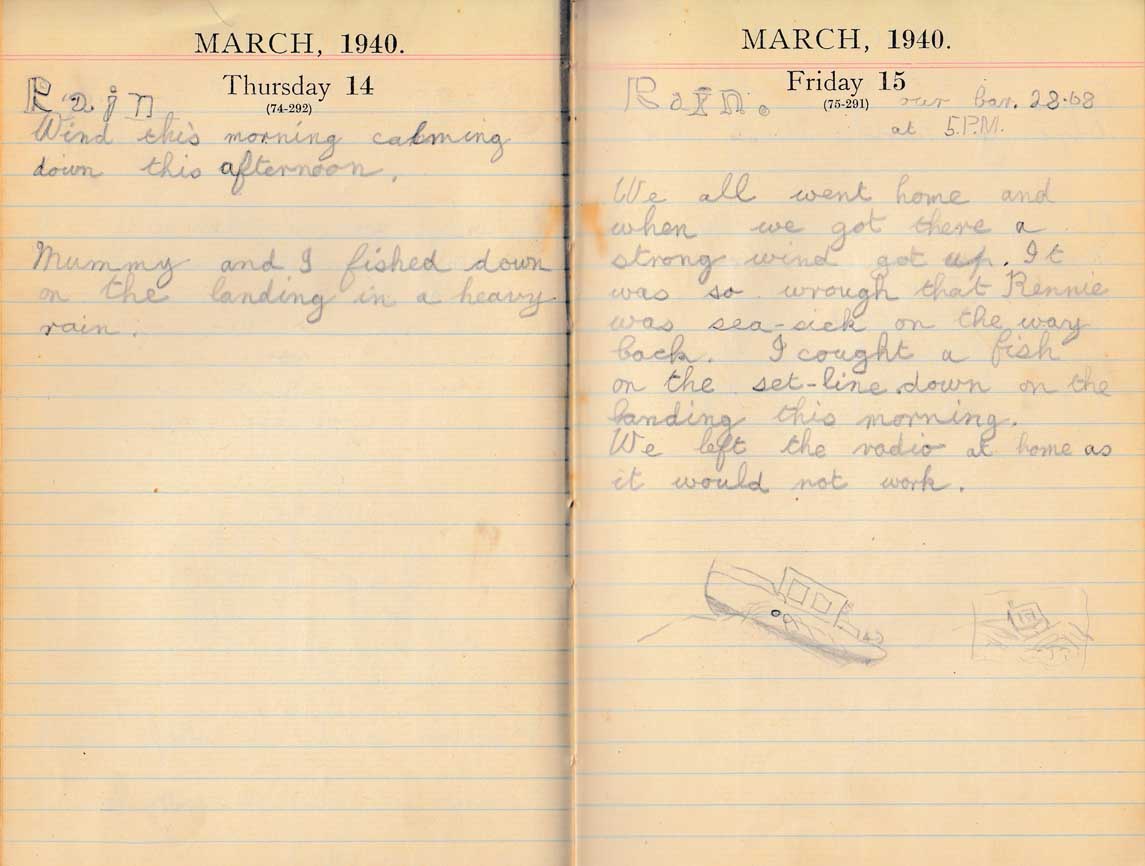 MARCH, 1940.
Thursday 14
(74-292)
Rain
Wind this morning calming
down this afternoon.
Mummy and I fished down
on the landing in a heavy
rain.
MARCH, 1940.
Friday 15
(75-291)
Rain. our bar. 28.68
at 5.P.M.
We all went home and
when we got there a
strong wind got up. It
was so wrough that Rennie
was sea-sick on the way
back. I cought a fish
on the set-line down on the
landing this morning.
We left the radio at home as
it would not work.